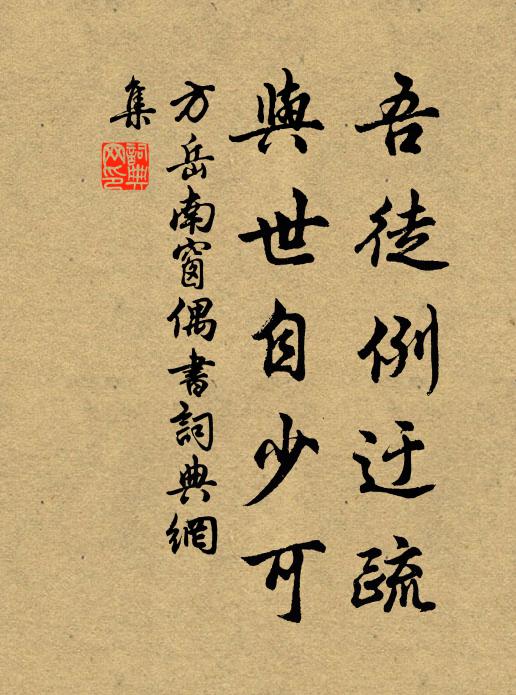 吾徒例迂疏
與世自少可
方岳南窗偶書詞典網
集
詞典網印